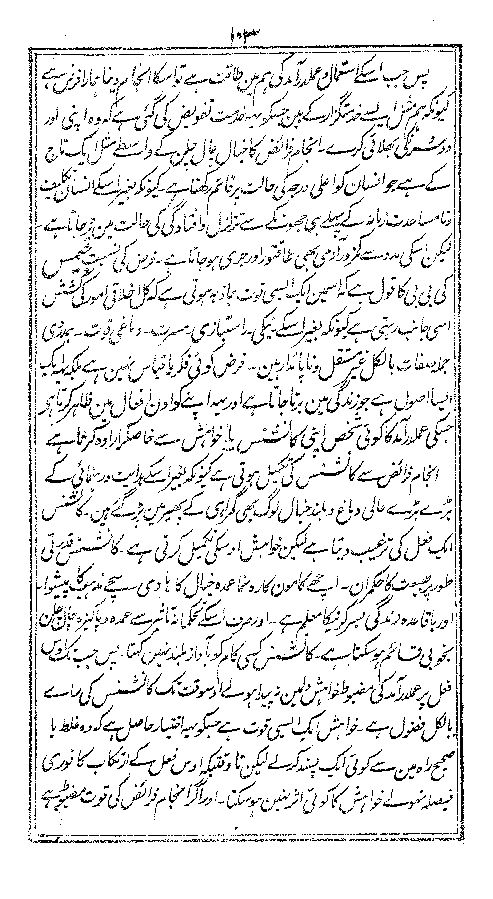 ۱۰۳
پس جب اسکے استعمال و عملدرآمد کی ہم مین طاقت ہے تو اسکا انجام دینا ہمارا فرض ہے
کیونکہ ہم مثل ایسے خدمتگزار کے ہین جسکو یہ خدمت تفویض کی گئی ہے کہ وہ اپنی اور
دوسرونکی بھلائی کرے۔ انجام فرائض کا خیال چال چلن کے واسطے مثل ایک تاج
کے ہے جو انسان کو اعلی درجہ کی حالت پر قائم رکھتا ہے۔ کیونکہ بغیر اسکے انسان تکلیف
و نامساعدت زمانہ کے پہلے ہی جھونکے سے تزلزل و افتادگی کی حالت مین پڑ جاتا ہے
لیکن اسکی مدد سے کمزور آدمی بھی طاقتور اور جری ہو جاتا ہے۔ فرض کی نسبت جیمس
کی بی بی کا قول ہے کہ اسمین ایک ایسی قوت جاذبہ ہوتی ہے کہ کل اخلاقی امور کی کشش
اسی جانب رہتی ہے کیونکہ بغیر اسکے نیکی۔ راستبازی۔ مسرت۔ دماغی قوت۔ ہمدردی
جملہ صفات بالکل غیر مستقل و ناپائدار ہین۔ فرض کوئی فکر یا قیاس نہین ہے بلکہ ایک
ایسا اصول ہے جو زندگی مین برتا جاتا ہے اور یہ اپنے کو اون افعال مین ظاہر کرتا ہے
جسکی عملدرآمد کا کوئی شخص اپنی کانشنس یا خواہش سے خاصکر ارادہ کرتا ہے
انجام فرائض سے کانشنس کی تکمیل ہوتی ہے کیونکہ بغیر اسکے ہدایت و رہنمائی کے
بڑے بڑے عالی دماغ و بلند خیال لوگ بھی گمراہی کے پھیر مین پڑ گئے ہین۔ کانشنس
ایک فعل کی ترغیب دیتا ہے لیکن خواہش اوسکی تکمیل کرتی ہے۔ کانشنس قدرتی
طور پر طبیعت کا حکمران۔ اچھے کامون کا رہنما عمدہ خیال کا ہادی سچے مذہب کا پیشوا
اور باقاعدہ زندگی بسر کرنیکا معلم ہے۔ اور صرف اسکے تحکمانہ تاثیر سے عمدہ و پاکیزہ چال چلن
بخوبی قائم ہو سکتا ہے۔ کانشنس کسی کام کو بآواز بلند نہین کہتا۔ پس جب تک اوس
فعل پر عملدرآمد کی مضبوط خواہش دلمین نہ پیدا ہولے اوسوقت تک کانشنس کی رائے
بالکل فضول ہے۔ خواہش ایک ایسی قوت ہے جسکو یہ اختیار حاصل ہے کہ وہ غلط یا
صحیح راہ مین سے کوئی ایک پسند کرلے لیکن تاوقتیکہ اوس فعل کے ارتکاب کا فوری
فیصلہ نہولے خواہش کا کوئی اثر نہین ہو سکتا۔ اور اگر انجام فرائض کی قوت مضبوط ہے